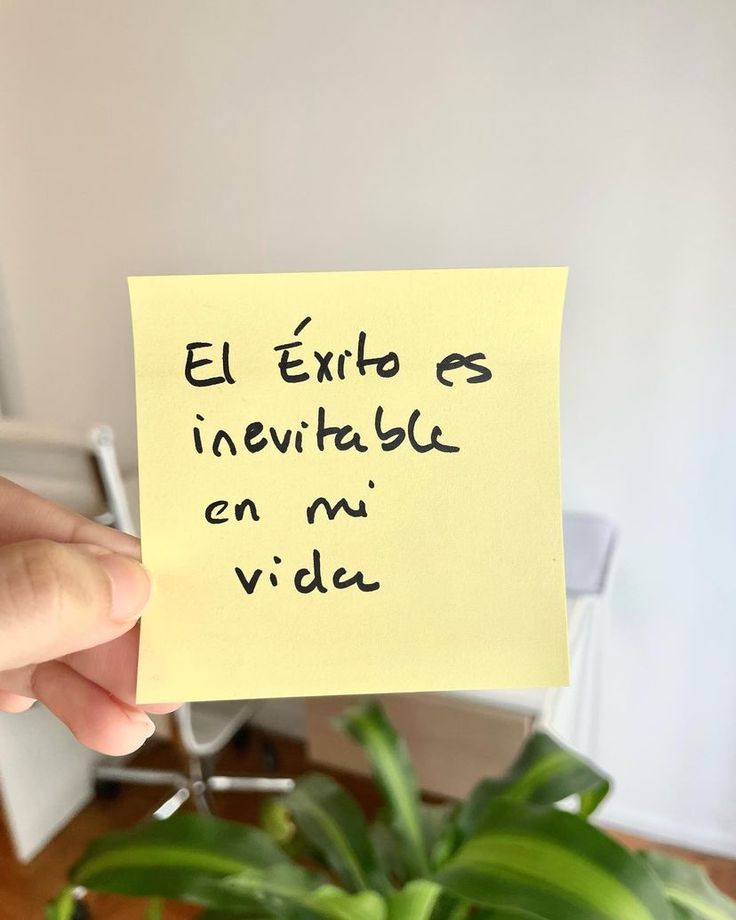 El Éxito es
inevitable
en mi
vida